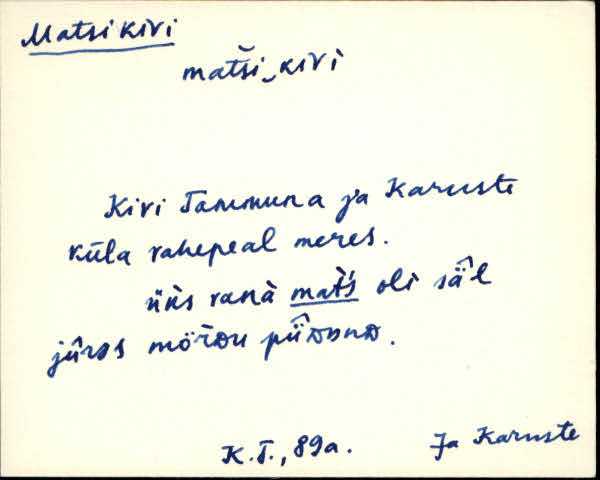 Matsikivi
matši‿kivi
Kivi Tammuna ja Karuste
küla vahepeal meres.
üks vanà mat's oli säl
jûras
K.T., 89a. Ja Karuste